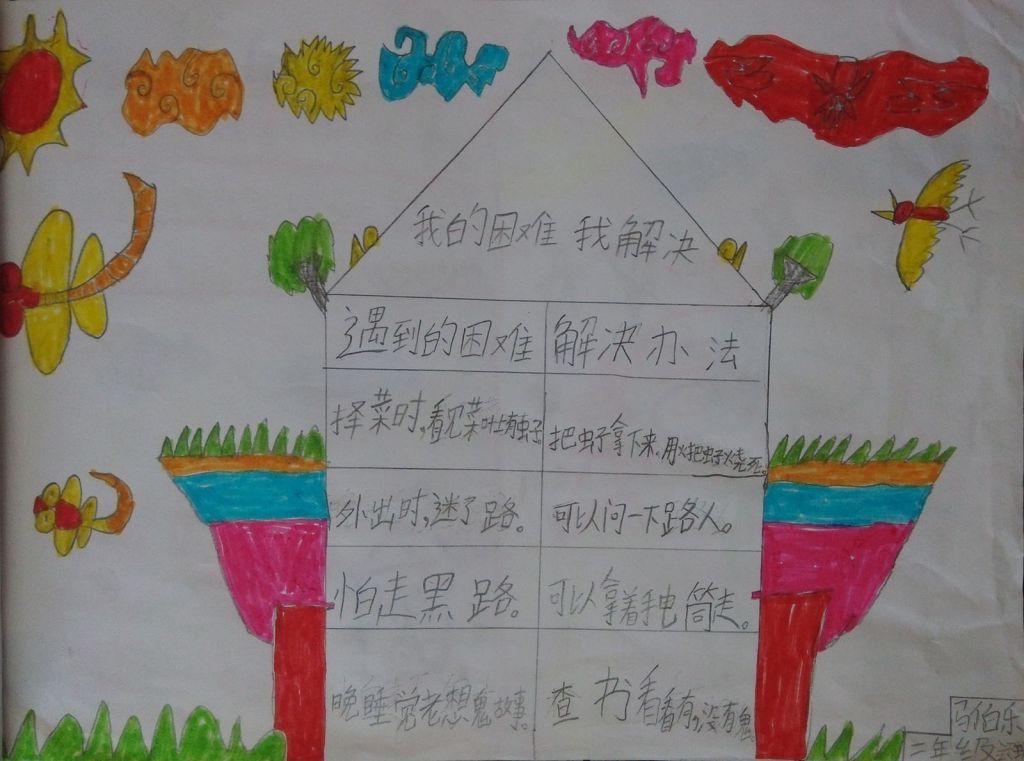 我的困难 我解决
遇到的困难 解决办法
择菜时,看见菜叶有虫子 把虫子拿下来,用火把虫子烧死。
外出时,迷了路。 可以问一下路人。
怕走黑路。 可以拿着手电筒走。
晚睡觉老想鬼故事。 查书看看有,没有鬼。
马伯乐
二年级